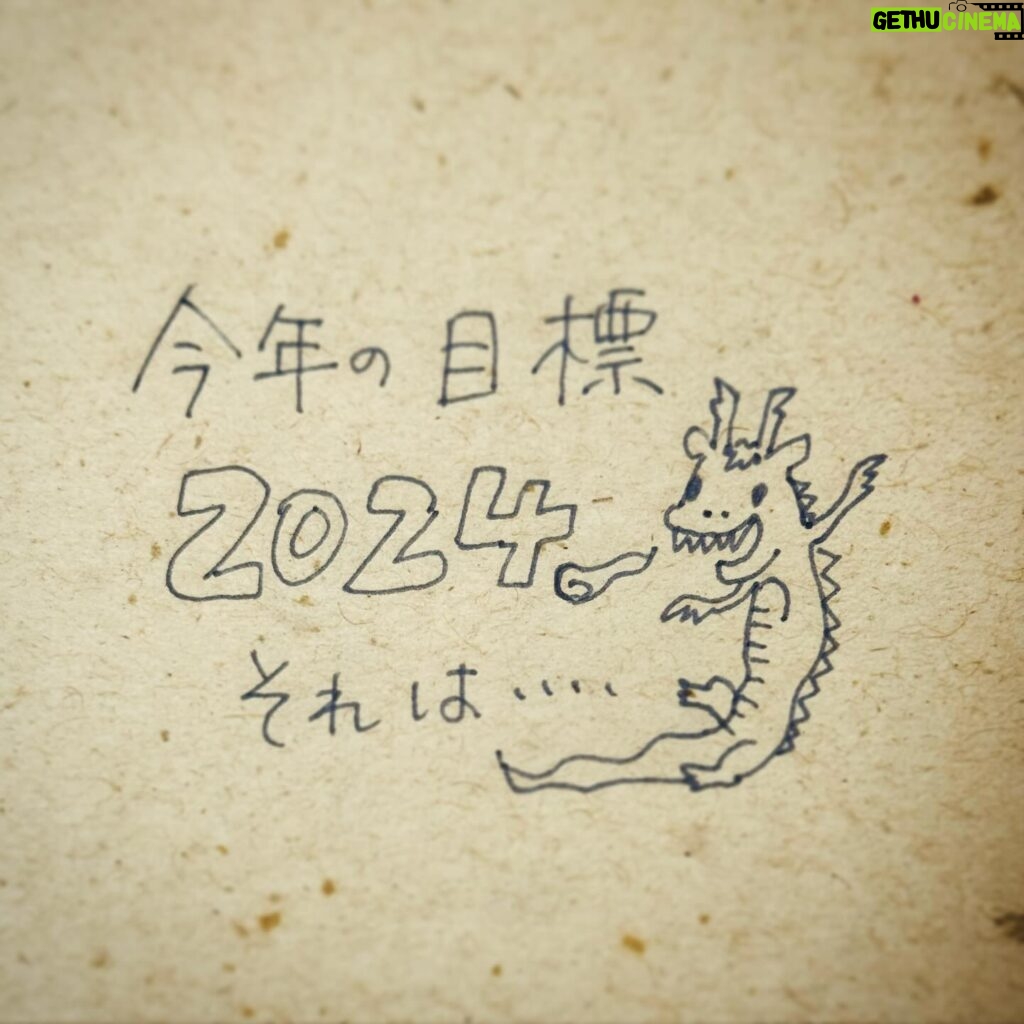 GETHUCINEMA
今年の目標
2024
それは‥‥